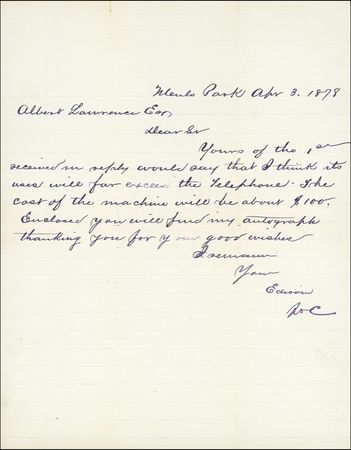 Menlo Park Apr 3. 1878
Albert Lawrence Esq
Dear Sir
Yours of the 1st
received in reply would say that I think its
uses will far exceed the Telephone. The
cost of the machine will be about $100.
Enclosed you will find my autograph
thanking you for your good wishes
I remain
Yours
Edison